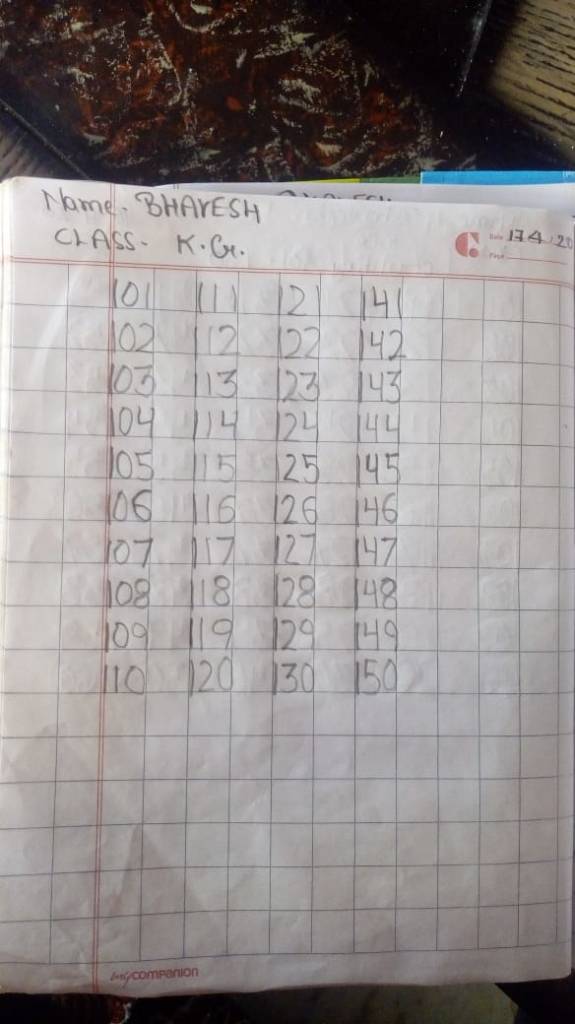 Name. BHAVESH
CLASS. K.G.
Date 17 4 20
Page
101 111 121 141
102 112 122 142
103 113 123 143
104 114 124 144
105 115 125 145
106 116 126 146
107 117 127 147
108 118 128 148
109 119 129 149
110 120 130 150
mycompanion